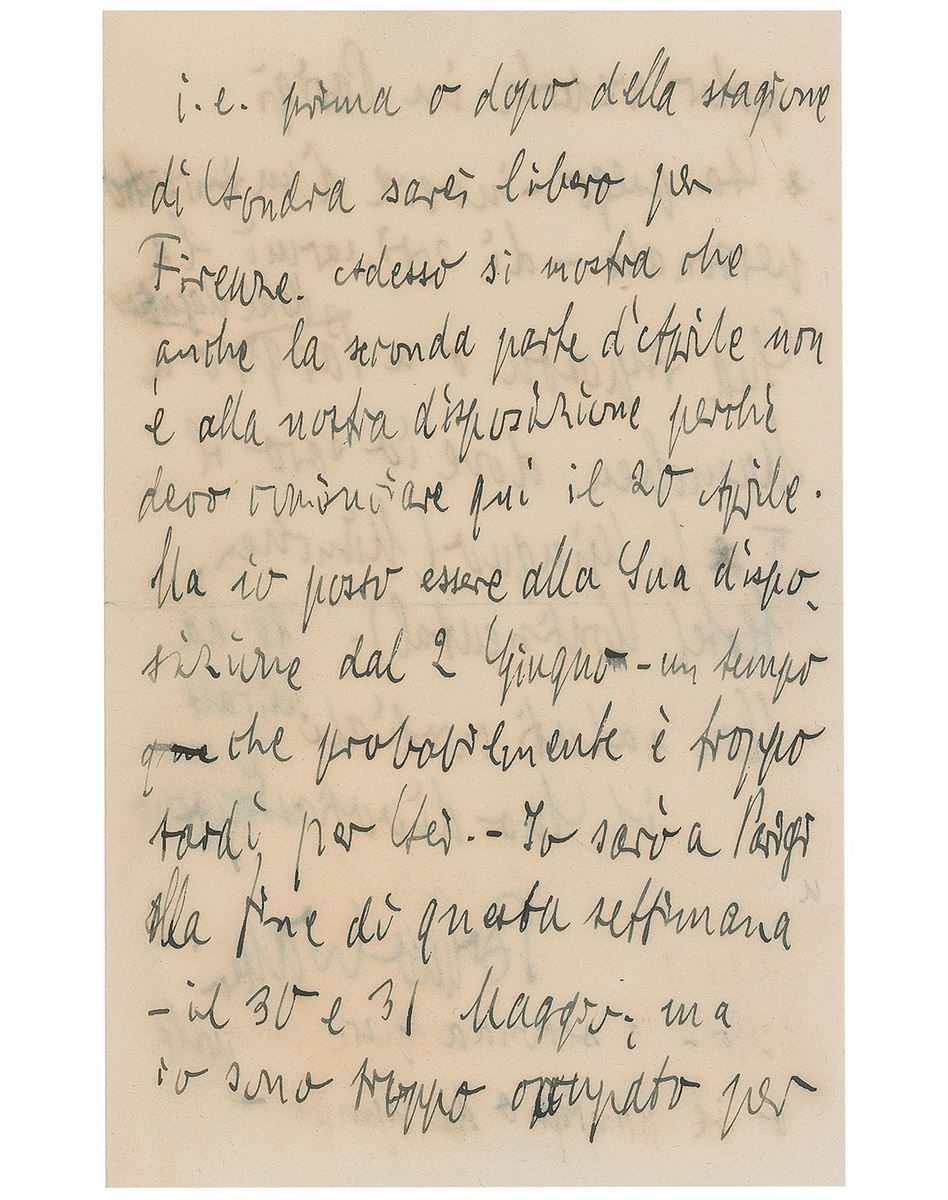 i.e. prima o dopo della stagione
di Londra sarei libero per
Firenze. Adesso si mostra che
anche la seconda parte d'Aprile non
è alla nostra disposizione perchè
devo cominciare qui il 20 Aprile.
Ma io posso essere alla Sua dispo-
sizione dal 2 Giugno - un tempo
que che probabilmente è troppo
tardi per Lei. - Io sarò a Parigi
alla fine di questa settimana
- il 30 e 31 Maggio; ma
io sono troppo occupato per